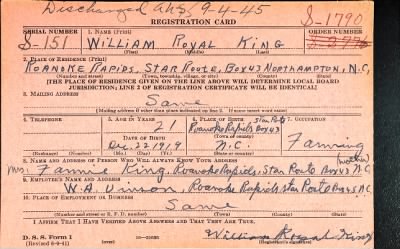 Discharged 9-4-45
REGISTRATION CARD
S-1790
SERIAL NUMBER
1. NAME (Print)
ORDER NUMBER
S-151
WILLIAM ROYAL KING
2. PLACE OF RESIDENCE (Print)
ROANOKE RAPIDS, STAR ROUTE, BOX 43 NORTHAMPTON, N.C.
(Number and street) (Town, township, village, or city) (County) (State)
[THE PLACE OF RESIDENCE GIVEN ON THE LINE ABOVE WILL DETERMINE LOCAL BOARD
JURISDICTION; LINE 2 OF REGISTRATION CERTIFICATE WILL BE IDENTICAL]
3. MAILING ADDRESS
Same
[Mailing address if other than place indicated on line 2. If same insert word same]
4. TELEPHONE
5. AGE IN YEARS
6. PLACE OF BIRTH
7. OCCUPATION
21
Star Route
Roanoke Rapids Box 43
DATE OF BIRTH
Dec. 22 1919
N.C.
Farming
(Exchange) (Number)
(Mo.) (Day) (Yr.)
(State or country)
8. NAME AND ADDRESS OF PERSON WHO WILL ALWAYS KNOW YOUR ADDRESS
(mother)
Mrs. Fannie King, Roanoke Rapids, Star Route Box 43 N.C.
9. EMPLOYER'S NAME AND ADDRESS
W.A. Vinson, Roanoke Rapids, Star Route Box 43 N.C.
10. PLACE OF EMPLOYMENT OR BUSINESS
Same
(Number and street or R. F. D. number) (Town) (County) (State)
I AFFIRM THAT I HAVE VERIFIED ABOVE ANSWERS AND THAT THEY ARE TRUE.
D. S. S. Form 1
(Revised 6-9-41)
William Royal King
(Registrant's signature)